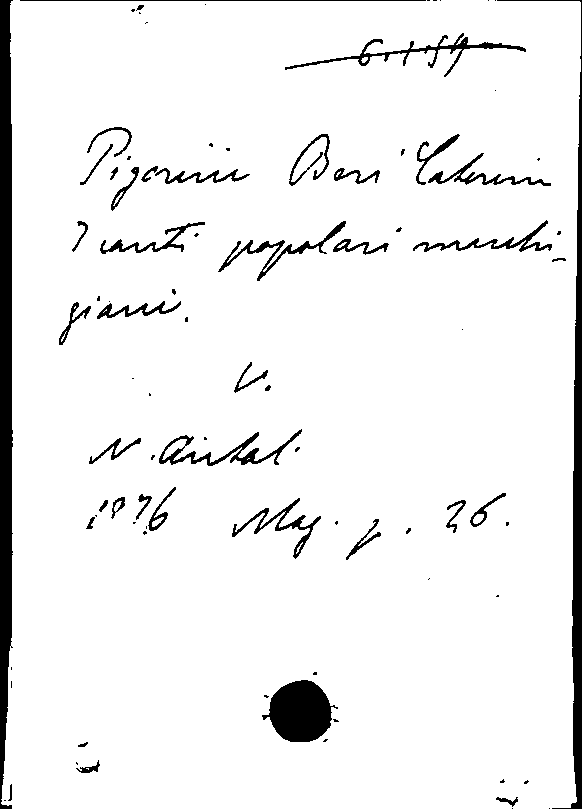 6.1.59
Pigorini Beri Caterina
I canti popolari marchi-
giani.
V.
N. Antol.
1876 Mag. p. 26.